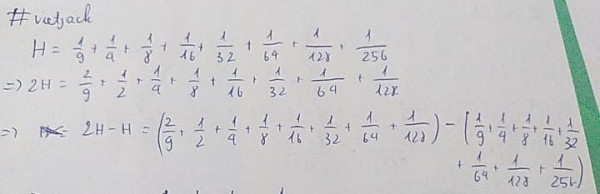 #vietjack
H = 1/9 + 1/4 + 1/8 + 1/16 + 1/32 + 1/64 + 1/128 + 1/256
=> 2H = 2/9 + 1/2 + 1/4 + 1/8 + 1/16 + 1/32 + 1/64 + 1/128
=> 2H - H = (2/9 + 1/2 + 1/4 + 1/8 + 1/16 + 1/32 + 1/64 + 1/128) - (1/9 + 1/4 + 1/8 + 1/16 + 1/32
+ 1/64 + 1/128 + 1/256)